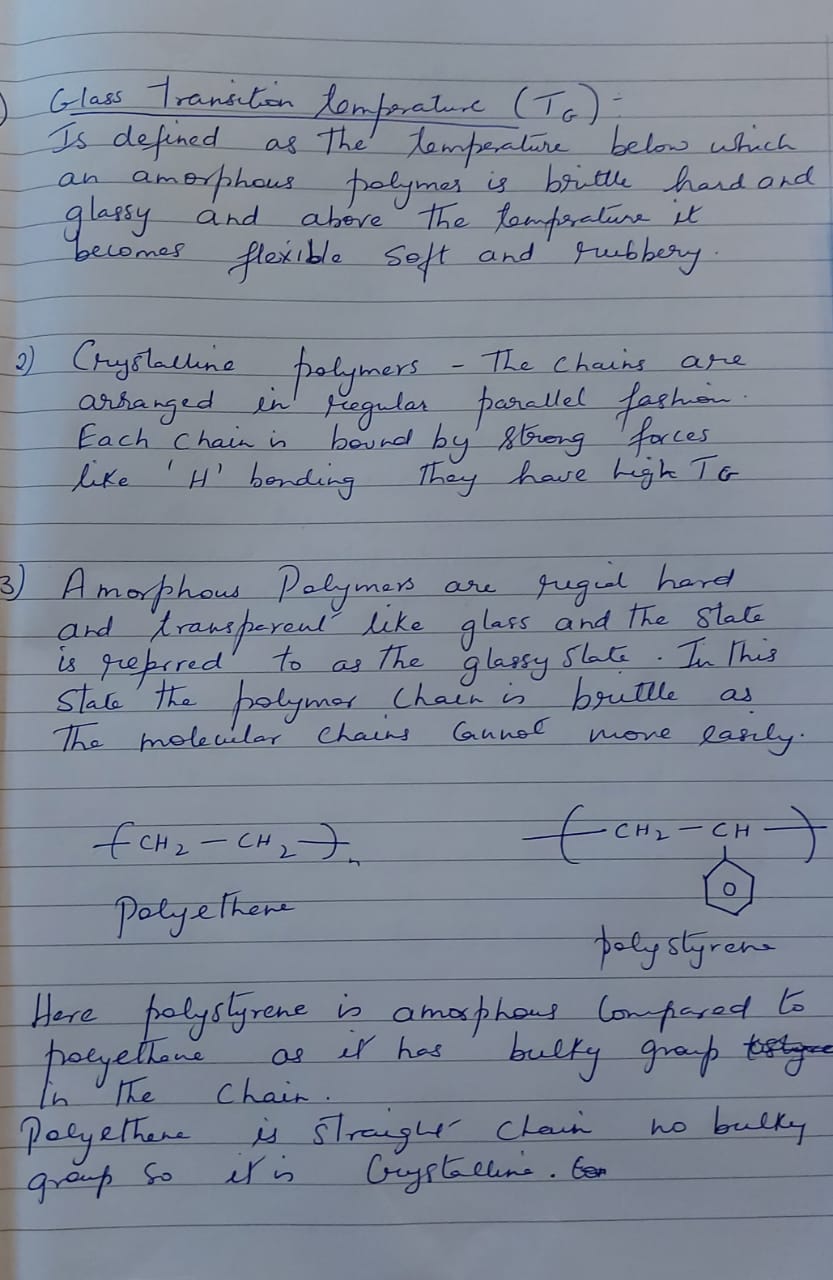 ) Glass Transition temperature (TG) :-
Is defined as the temperature below which
an amorphous polymer is brittle hard and
glassy and above the temperature it
becomes flexible soft and rubbery.
2) Crystalline polymers - The chains are
arranged in regular parallel fashion.
Each chain is bound by strong forces
like 'H' bonding They have high TG
3) Amorphous Polymers are rigid hard
and transparent like glass and the state
is referred to as the glassy state. In this
state the polymer chain is brittle as
The molecular chains cannot move easily.
( CH2 - CH2 )n
Polyethene
( CH2 - CH )
polystyrene
Here polystyrene is amorphous compared to
polyethene as it has bulky group
in the chain.
Polyethene is straight chain no bulky
group so it is Crystalline.